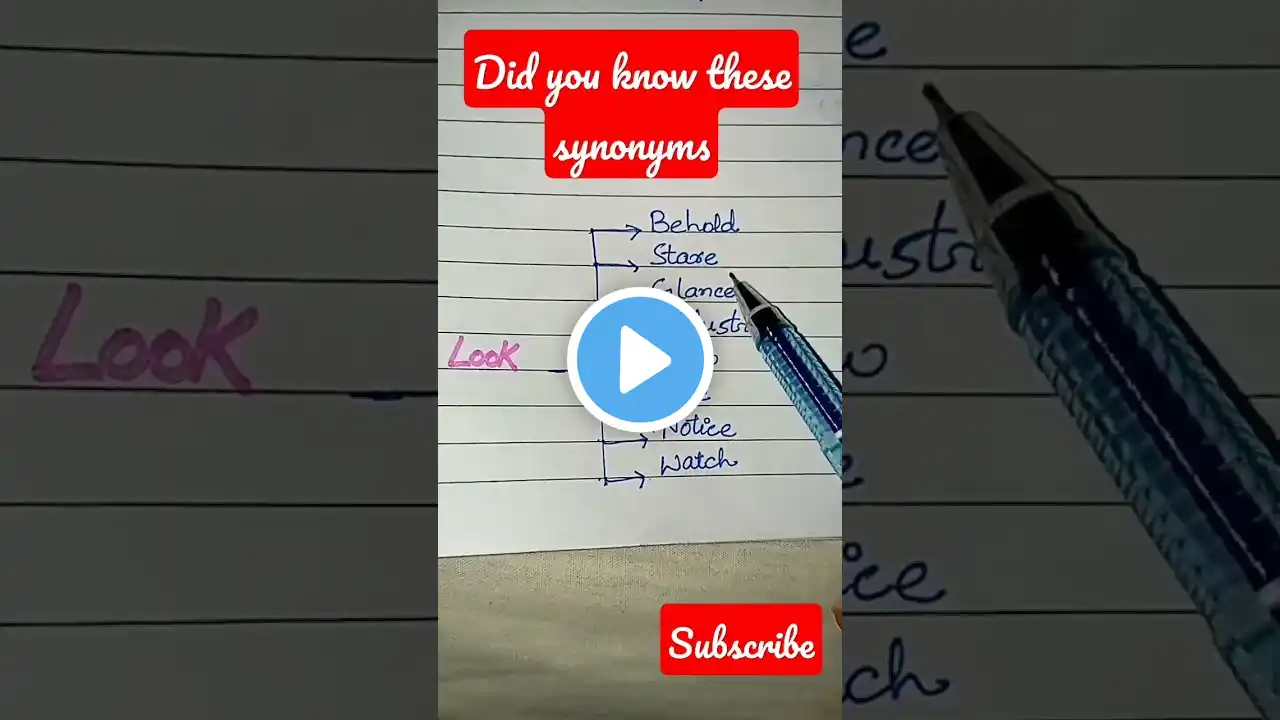 Did you know these
synonyms
Behold
Stare
Glance
Look
Notice
Watch
Subscribe